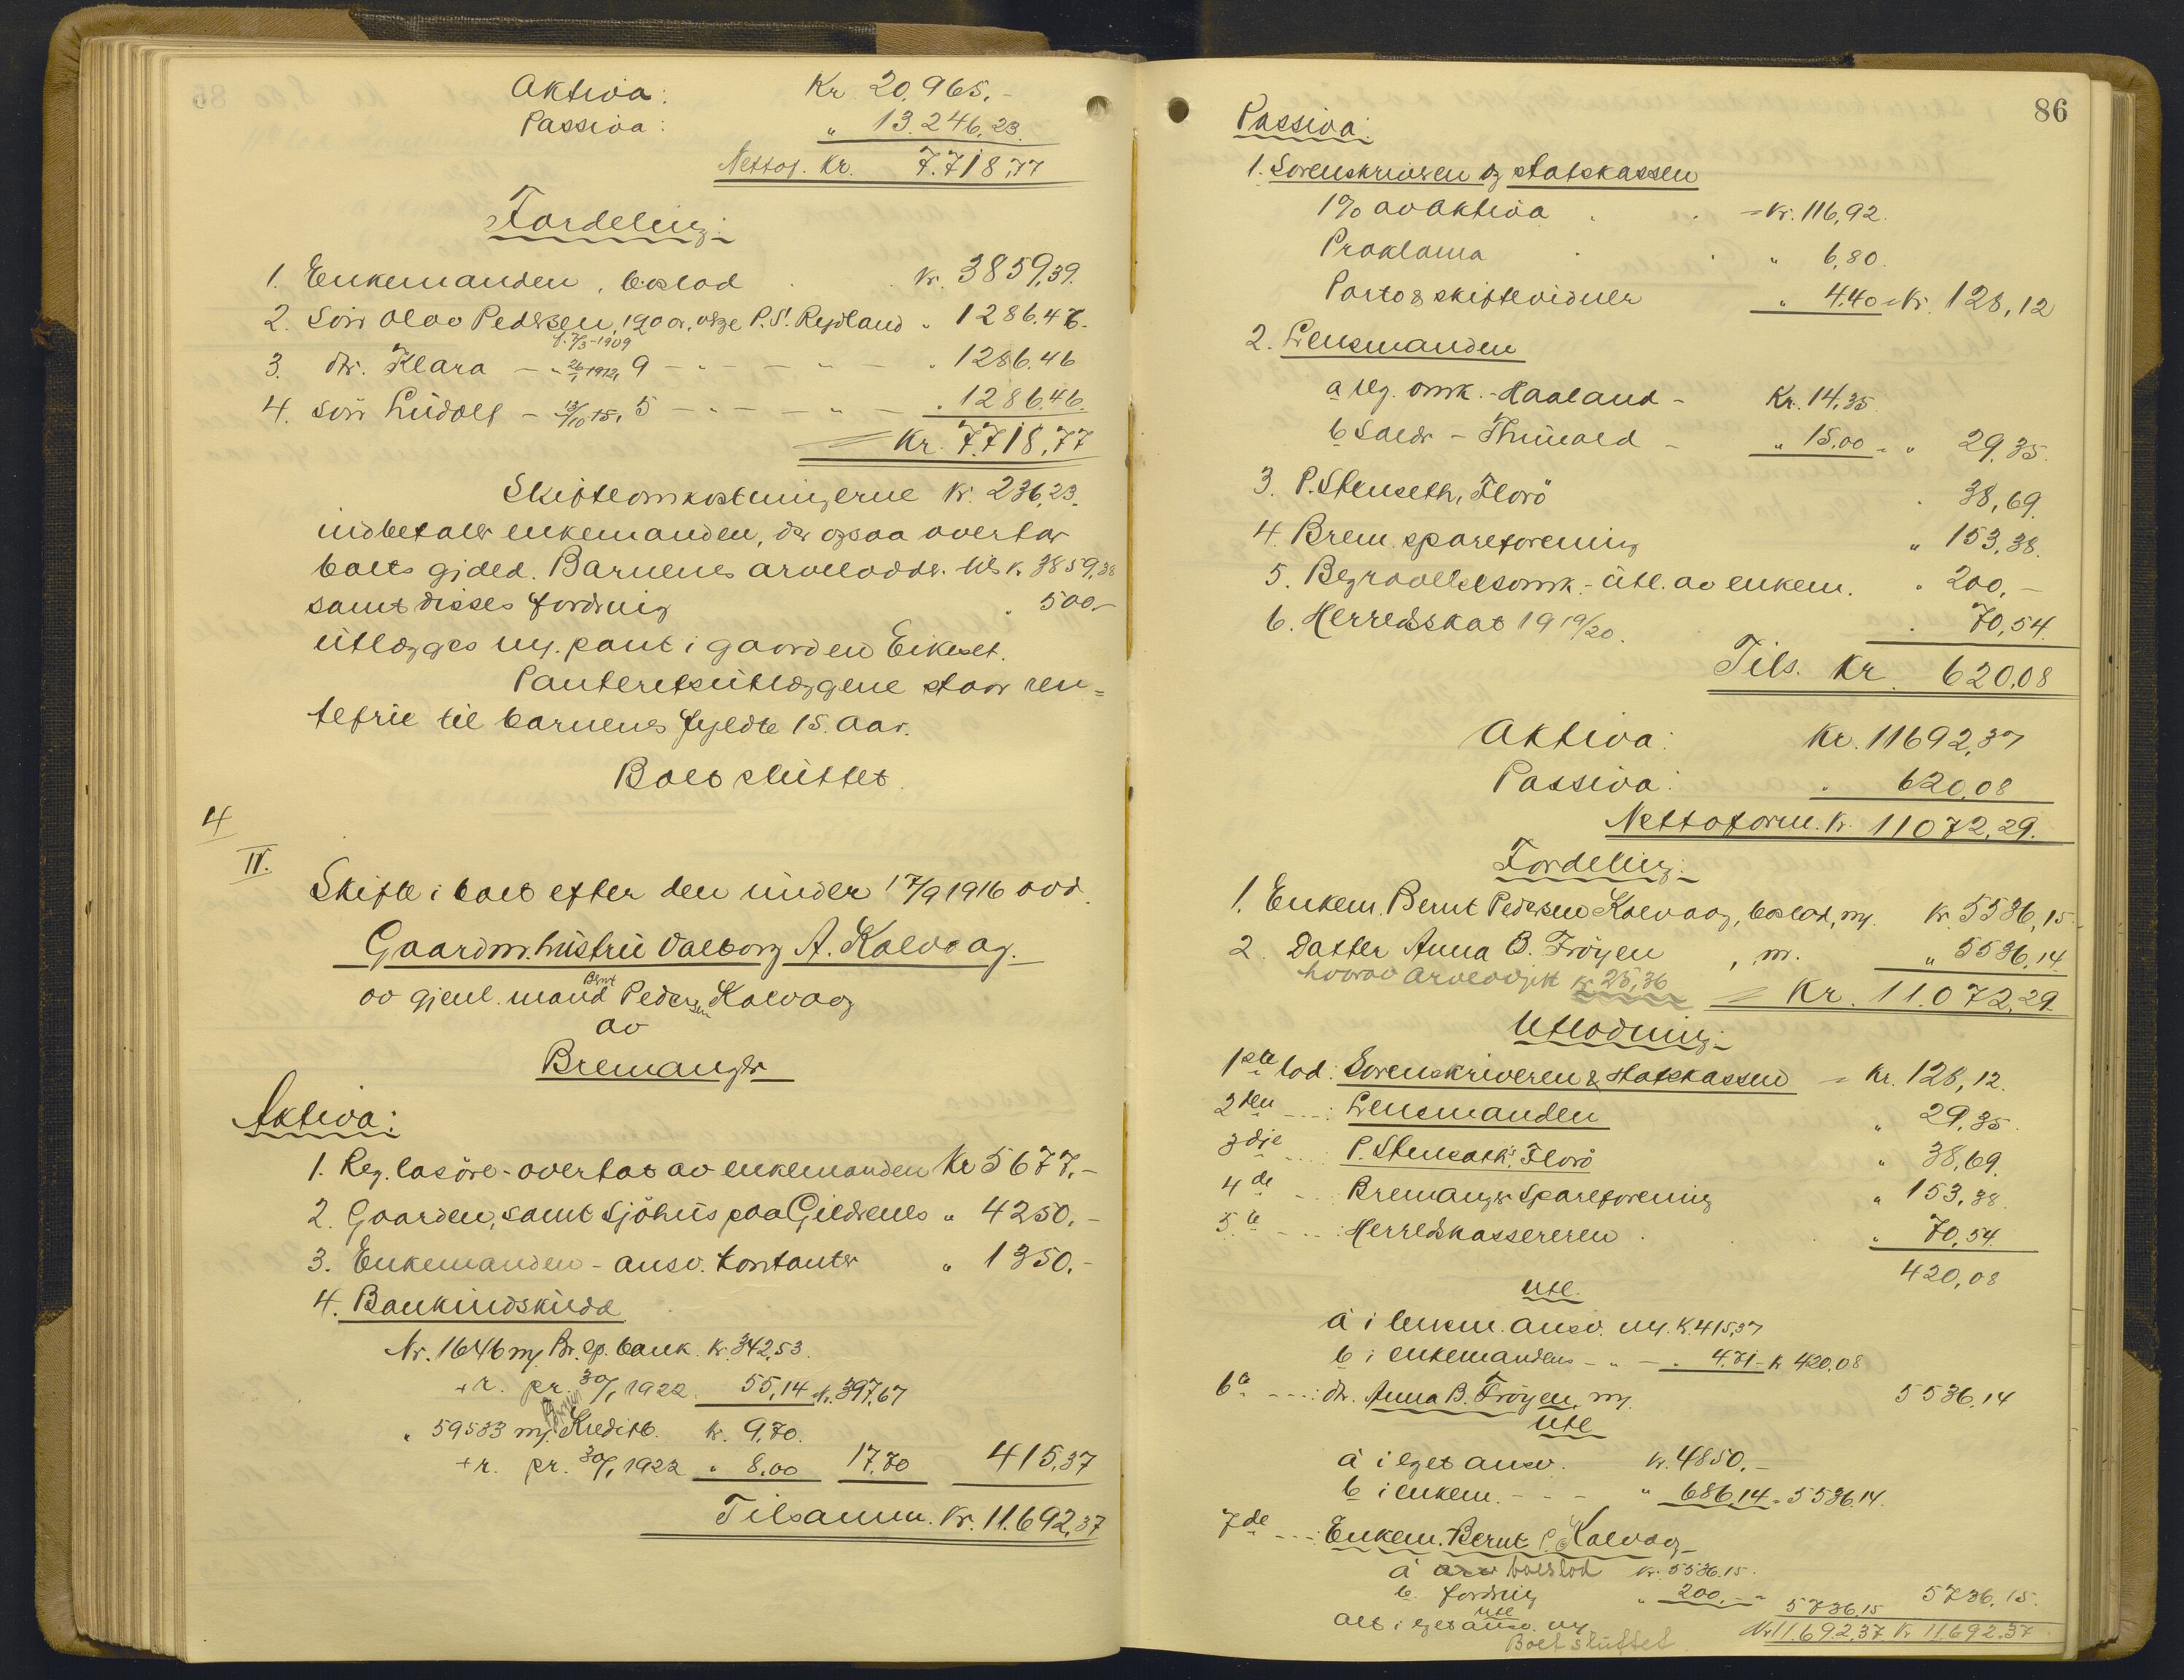 Aktiva: Kr. 20.965.-
Passiva: " 13.246,23.
Nettof. Kr. 7.718,77
Fordeling:
1. Enkemanden, boslod kr. 3859,39.
2. Søn Olav Pedersen, 12 aar, P.S. Rydland " 1286.46.
f. 7/3-1909
3. dtr. Klara - " 26/1 1912, 9 - " - - " - " 1286.46
4. Søn Ludolf - 13/10 15, 5 - " - - " - " 1286.46.
= Kr. 7.718,77
Skifteomkostningerne kr. 236,23.
indbetaler enkemanden, der ogsaa overtar
boets gjeld. Barnenes arvelodder tils. kr. 3859,38
samt disses fordring " 500.-
utlægges m. pant i gaarden Eikeset.
Panteretsutlæggene staar ren=
tefrie til barnenes fyldte 15. Aar.
Boet sluttet.
4
IV.
Skifte i boet efter den under 17/9 1916 avd.
Gaardm.hustru Valborg A. Kalvaag.
av gjenl. mand Bernt Pedersen Kalvaag
av
Bremanger
Aktiva:
1. Reg. løsøre - overtat av enkemanden Kr 5677.-
2. Gaarden, samt Sjøhus paa Gildrenes " 4250.-
3. Enkemanden - ansv. kontanter " 1350.-
4. Bankindskudd.
Nr. 1646 m. Br. sp. bank. kr. 342,53.
+ r. pr. 30/1 1922. 55,14 kr. 397,67
" 59533 m. Bergen Kreditb. kr. 9,70.
+ r. pr. 30/1 1922 " 8.00 17,70 415,37
Tilsamm. Kr. 11.692,37
86
Passiva:
1. Sorenskriveren og statskassen
1% av Aktiva - Kr. 116,92.
Proklama " 6,80.
Porto & skiftevidner " 4.40 = Kr. 128,12
2. Lensmanden
a reg. omk. - Haaland - Kr. 14,35
b Saldr - Thunold - " 15,00 = " 29,35.
3. P. Stenseth, Florö " 38,69.
4. Brem. spareforening " 153,38.
5. Begravelsesomk. - utl. av enkem. " 200,-
6. Herredsskat 19 19/20. " 70,54.
Tils. Kr. 620,08
Aktiva: Kr. 11692,37
Passiva: " 620,08
Nettoform. Kr. 11072,29.
Fordeling:
1. Enkem. Bernt Pedersen Kalvaag, boslod, m. Kr. 5536,15.
2. Datter Anna B. Fröyen , m. " 5536,14
hvorav Arveavgift kr. 25,36
= Kr. 11.072,29.
Utlodning:
1ste lod: Sorenskriveren & Statskassen = Kr. 128,12.
2den - - -: Lensmanden " 29,35.
3dje - - - P. Stenseth, Florö " 38,69.
4de - - - Bremanger Spareforening " 153,38.
5te - - -: Herredskassereren " 70,54.
420,08
Utl.
a i enkem. ansv. m. k. 415,37
b i enkemandens - " - " 4,71 = k 420.08
6te - - -: dtr. Anna B. Fröyen, m. 5536,14
Utl
a i eget ansv. kr. 4850.-
b i enkem. - - - " 686,14 = 5536,14.
7de - - -: Enkem. Bernt P. Kalvaag
a boeslod kr. 5536.15.
b. fordring " 200.- = 5736,15 5736,15.
utl
alt i eget ansv. m. Kr 11.692,37 Kr 11.692.37
Boet sluttet.